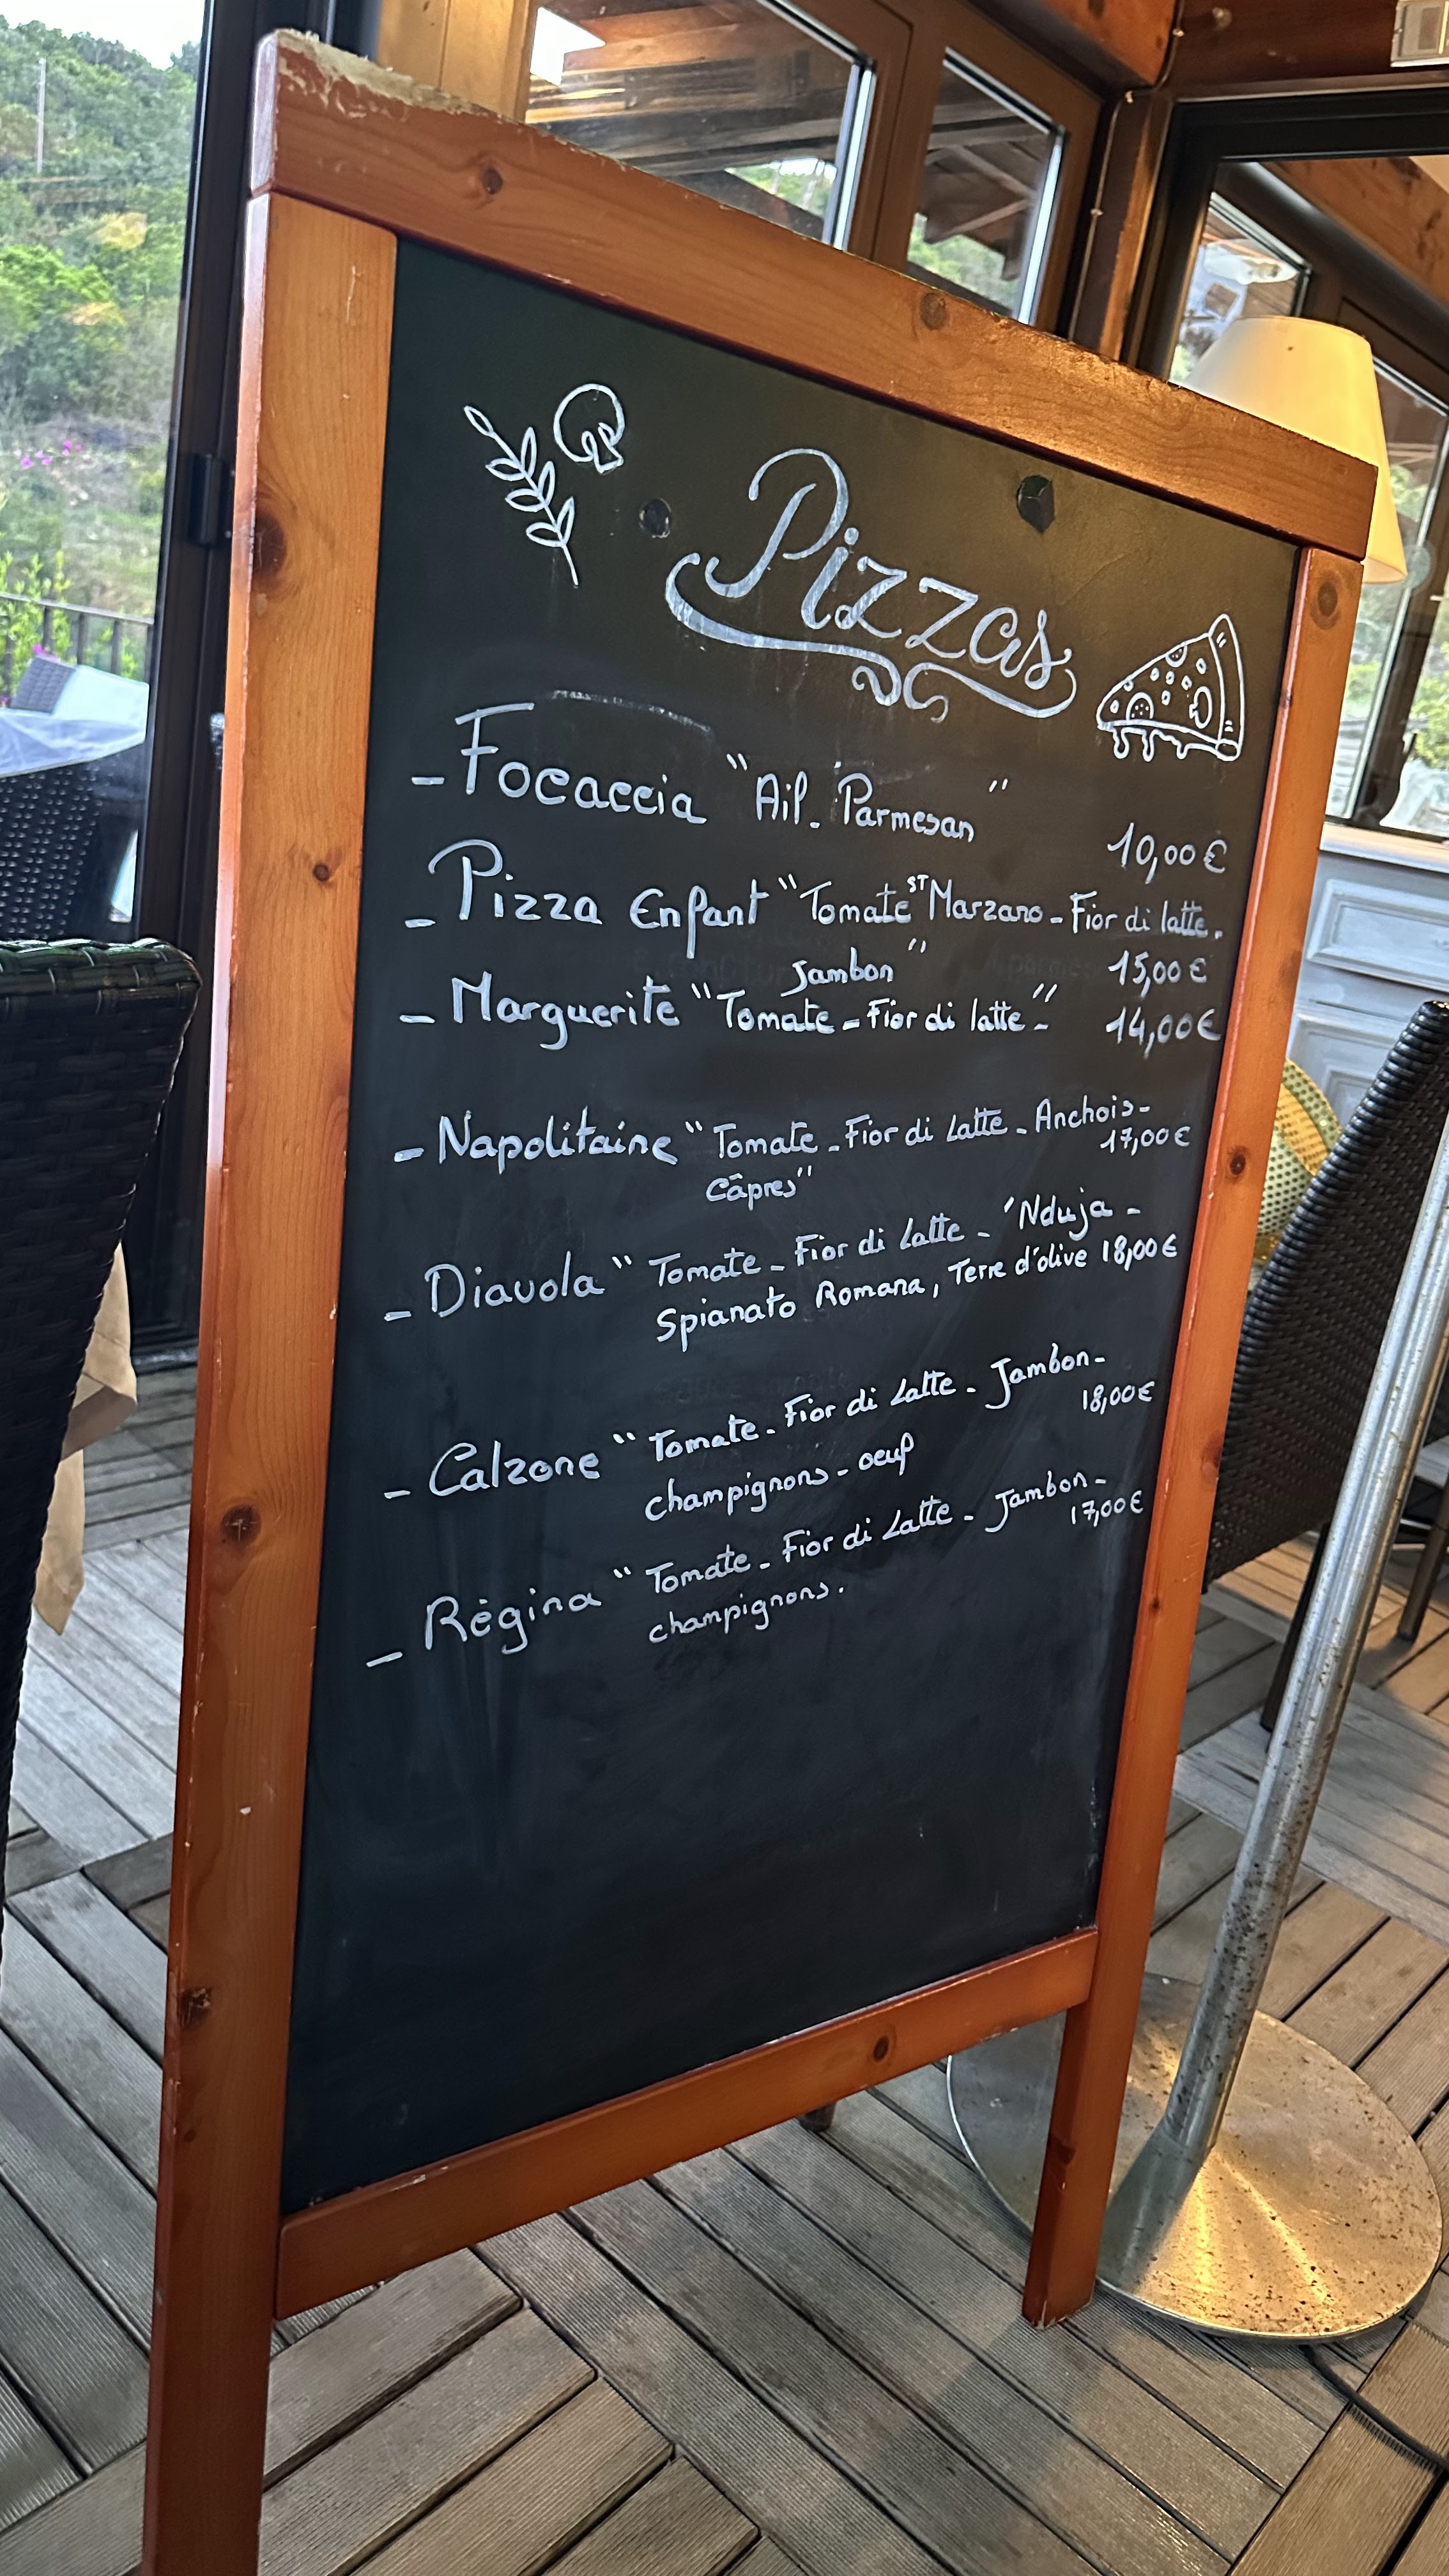 Pizzas
- Focaccia "Ail. Parmesan" 10,00€
- Pizza Enfant "Tomate ST Marzano - Fior di latte.
Jambon" 15,00€
- Marguerite "Tomate - Fior di latte -" 14,00€
- Napolitaine "Tomate - Fior di Latte - Anchois -
17,00€
Câpres"
- Diavola "Tomate - Fior di Latte - 'Nduja -
Spianato Romana, Terre d'olive 18,00€
- Calzone "Tomate - Fior di Latte - Jambon -
18,00€
champignons - oeuf
- Régina "Tomate - Fior di Latte - Jambon -
17,00€
champignons.